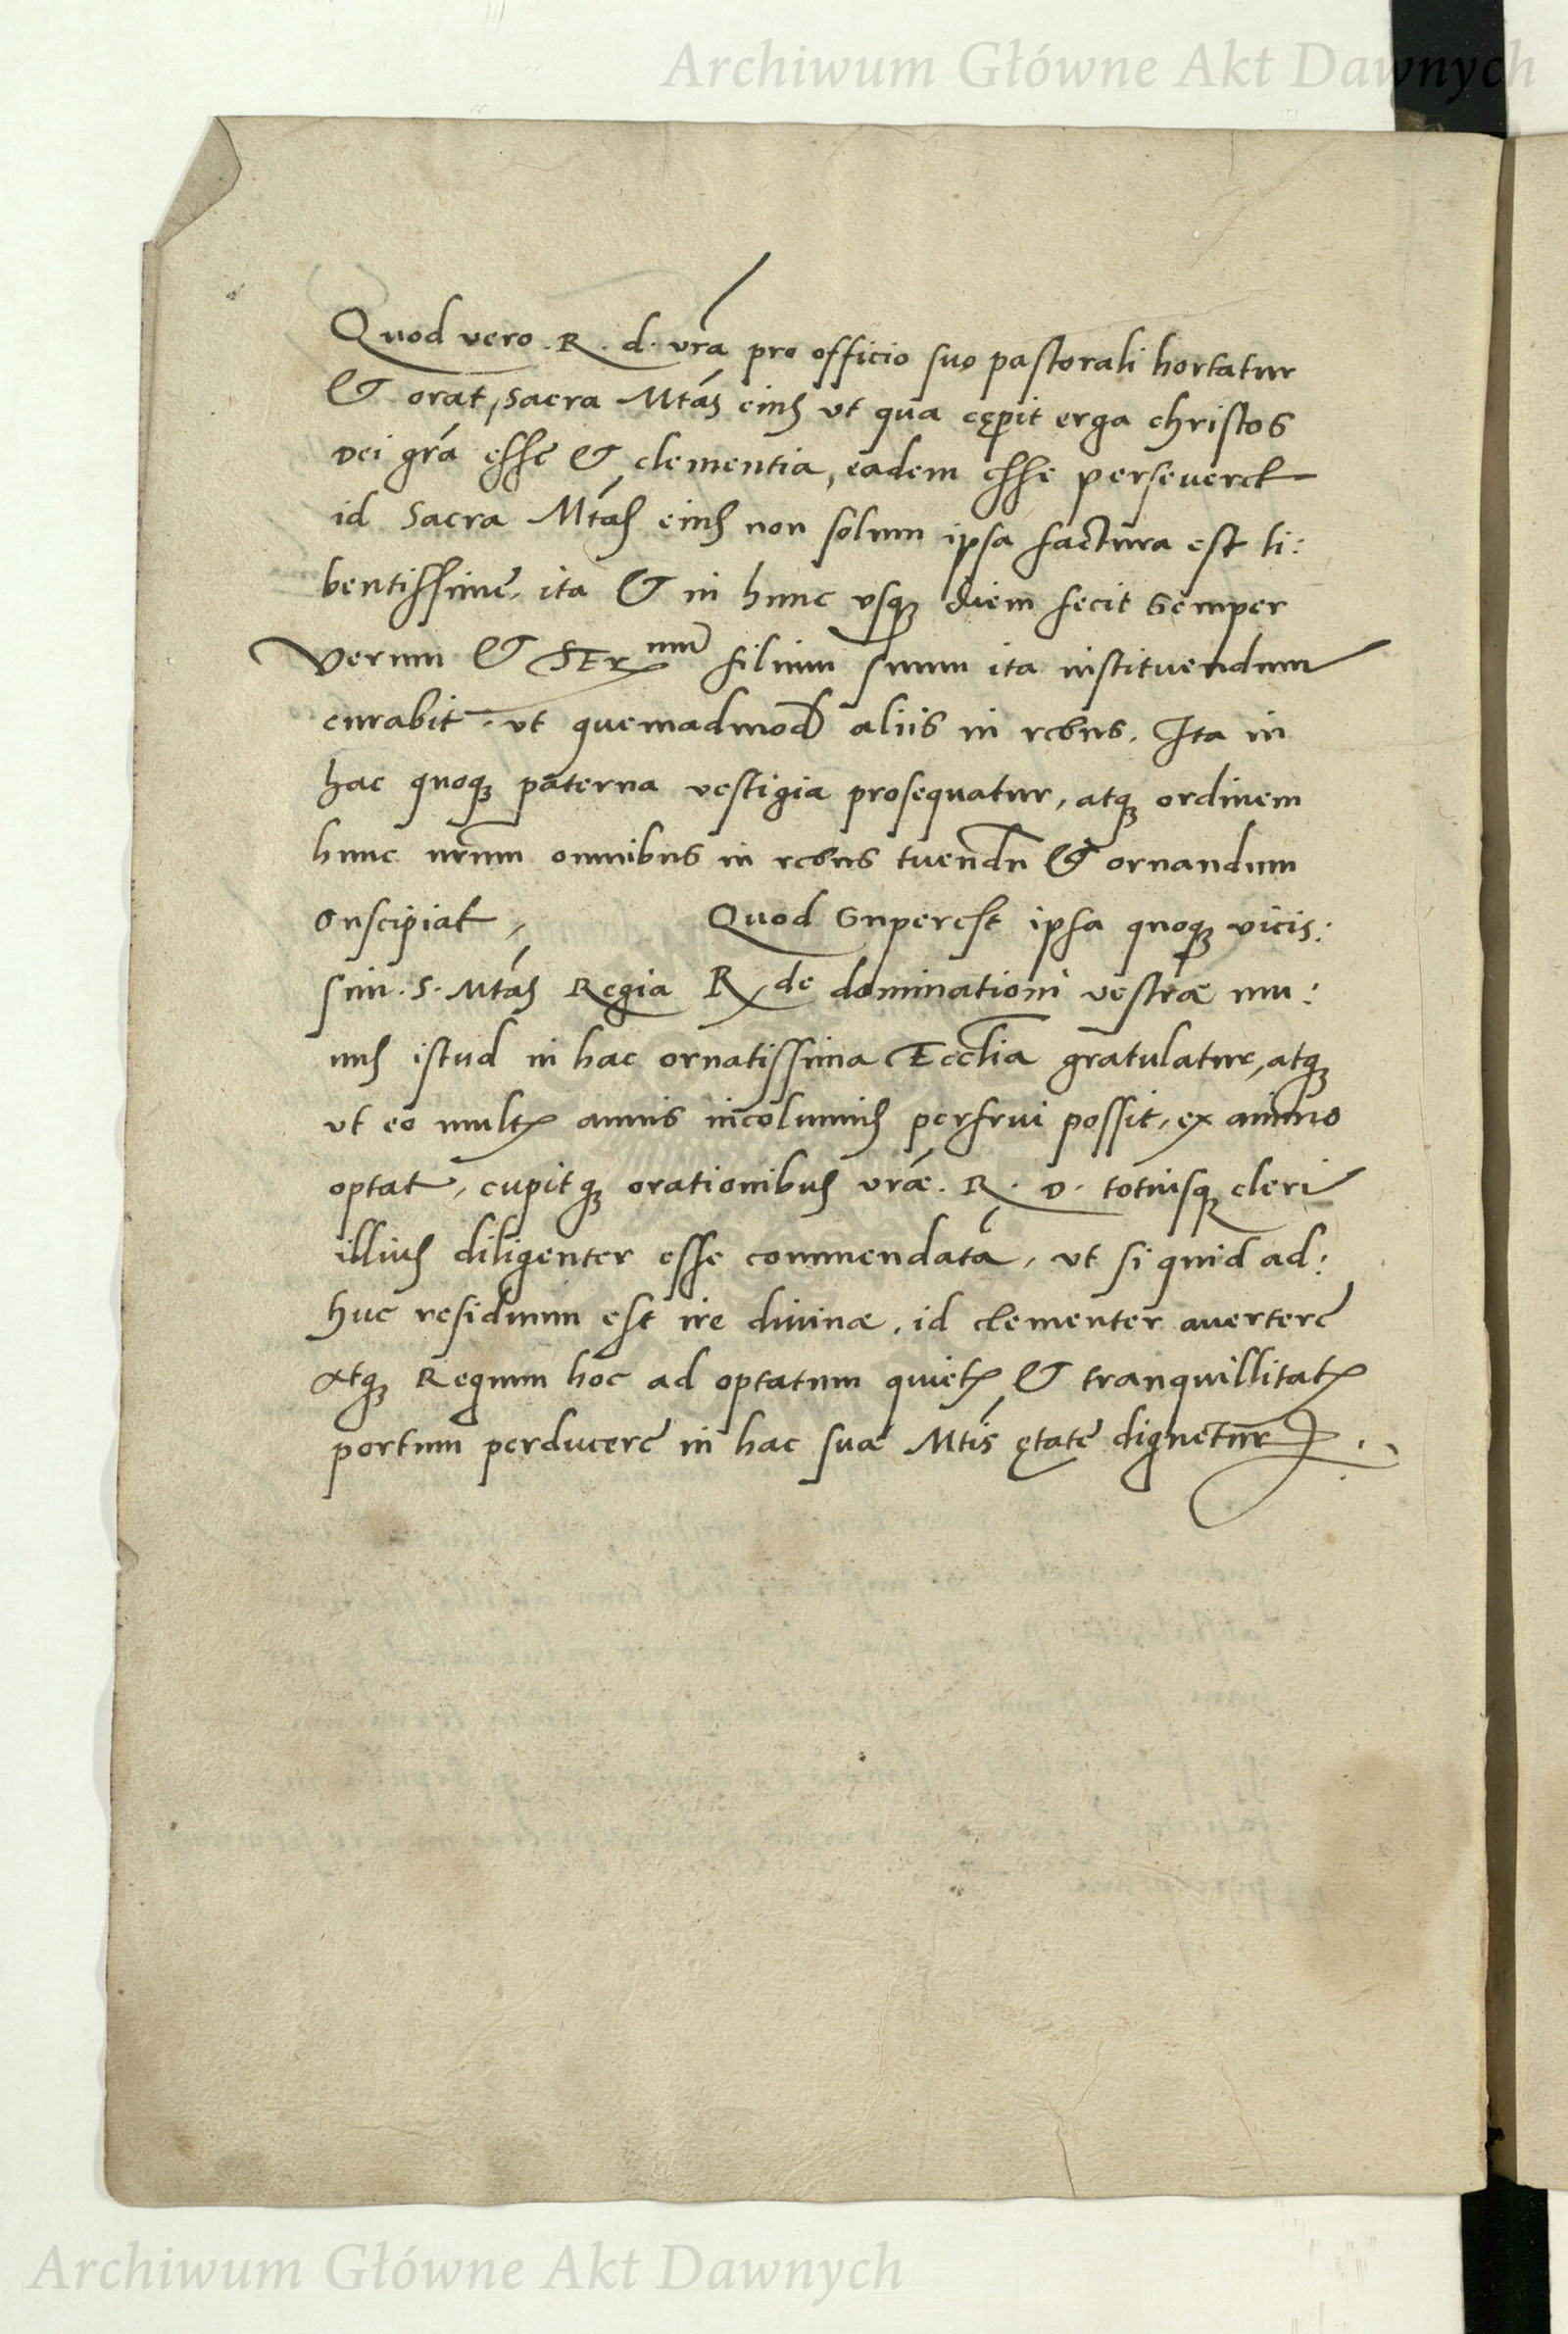 Archiwum Główne Akt Dawnych
Quod vero .R. d. vrã pro officio suo pastorali hortatur
& orat, sacra Mtás eius vt qua cępit erga christos
Dei grã esse & clementia, eadem esse perseveret
id Sacra Mtás eius non solum ipsa factura est li:
bentissime, ita & in hunc vsq; diem fecit semper
Verum & SEr^mũ filium suum ita instituendum
curabit. vt quemadmod aliis in rebus. Ita in
hac quoq; paterna vestigia prosequatur, atq; ordinem
hunc nrũm omnibus in rebus tuendũ & ornandum
suscipiat, Quod superest ipsa quoq; vicis:
sim. S. Mtás Regia R^de dominationi vestræ mu:
nus istud in hac ornatissima Ecclia gratulatur, atq;
vt eo mult. annis incolumis perfrui possit, ex animo
optat, cupitq; orationibus vræ. R. D. totiusq; cleri
illius diligenter esse commendatã, vt si quid ad:
huc residuum est ire divinæ, id clementer avertere
atq; Regnum hoc ad optatum quiet. & tranquillitat.
portum perducere in hac suæ Mtis ętate dignetur
Archiwum Główne Akt Dawnych